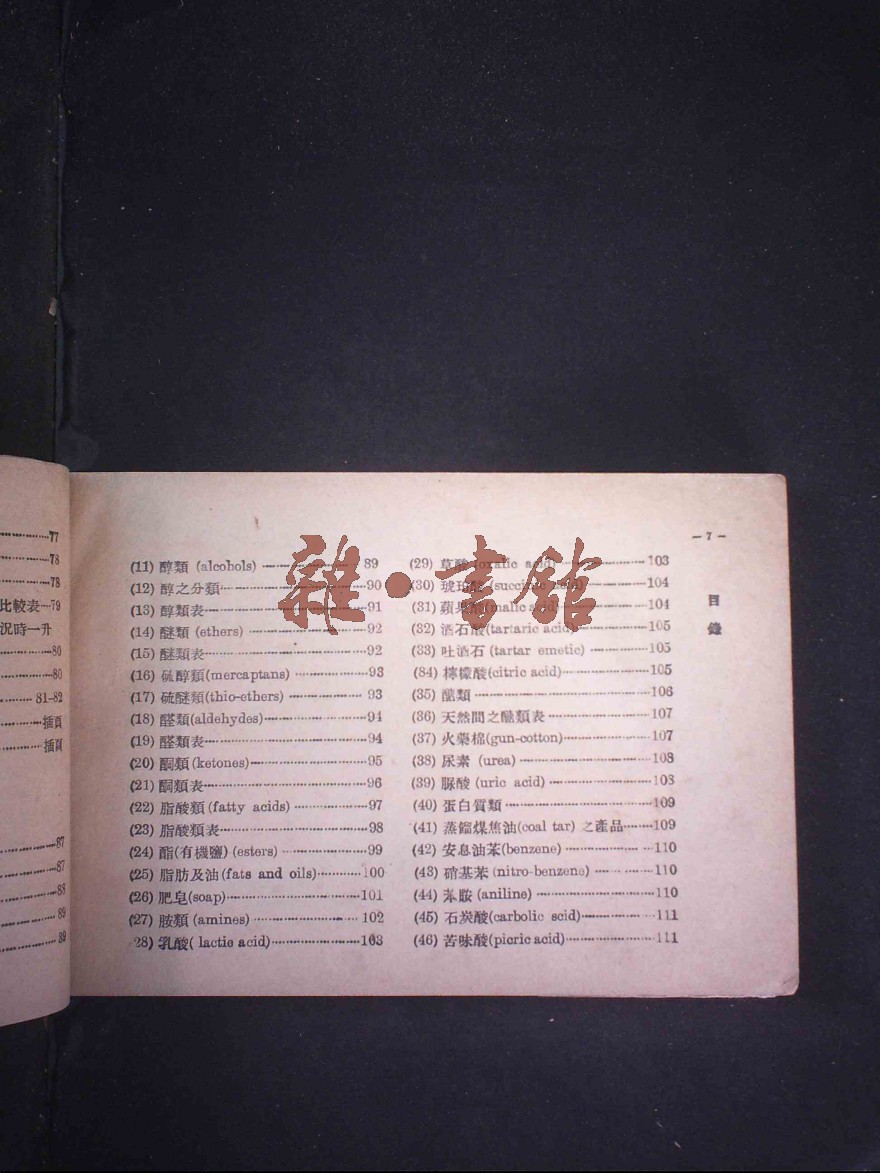 77
78
78
比較表 79
況時一升
80
80
81-82
插頁
插頁
87
87
88
89
89
— 7 —
目錄
(11) 醇類 (alcohols) 89
(12) 醇之分類 90
(13) 醇類表 91
(14) 醚類 (ethers) 92
(15) 醚類表 92
(16) 硫醇類(mercaptans) 93
(17) 硫醚類(thio-ethers) 93
(18) 醛類(aldehydes) 94
(19) 醛類表 94
(20) 酮類(ketones) 95
(21) 酮類表 96
(22) 脂酸類(fatty acids) 97
(23) 脂酸類表 98
(24) 酯(有機鹽) (esters) 99
(25) 脂肪及油(fats and oils) 100
(26) 肥皂(soap) 101
(27) 胺類 (amines) 102
28) 乳酸( lactic acid) 103
(29) 草酸 (oxalic acid) 103
(30) 琥珀酸 (succinic acid) 104
(31) 蘋果酸(malic acid) 104
(32) 酒石酸(tartaric acid) 105
(33) 吐酒石 (tartar emetic) 105
(34) 檸檬酸(citric acid) 105
(35) 醣類 106
(36) 天然間之醣類表 107
(37) 火藥棉(gun-cotton) 107
(38) 尿素 (urea) 108
(39) 脲酸 (uric acid) 108
(40) 蛋白質類 109
(41) 蒸餾煤焦油(coal tar) 之產品 109
(42) 安息油苯(benzene) 110
(43) 硝基苯 (nitro-benzene) 110
(44) 苯胺 (aniline) 110
(45) 石炭酸(carbolic acid) 111
(46) 苦味酸(picric acid) 111
雜·書館